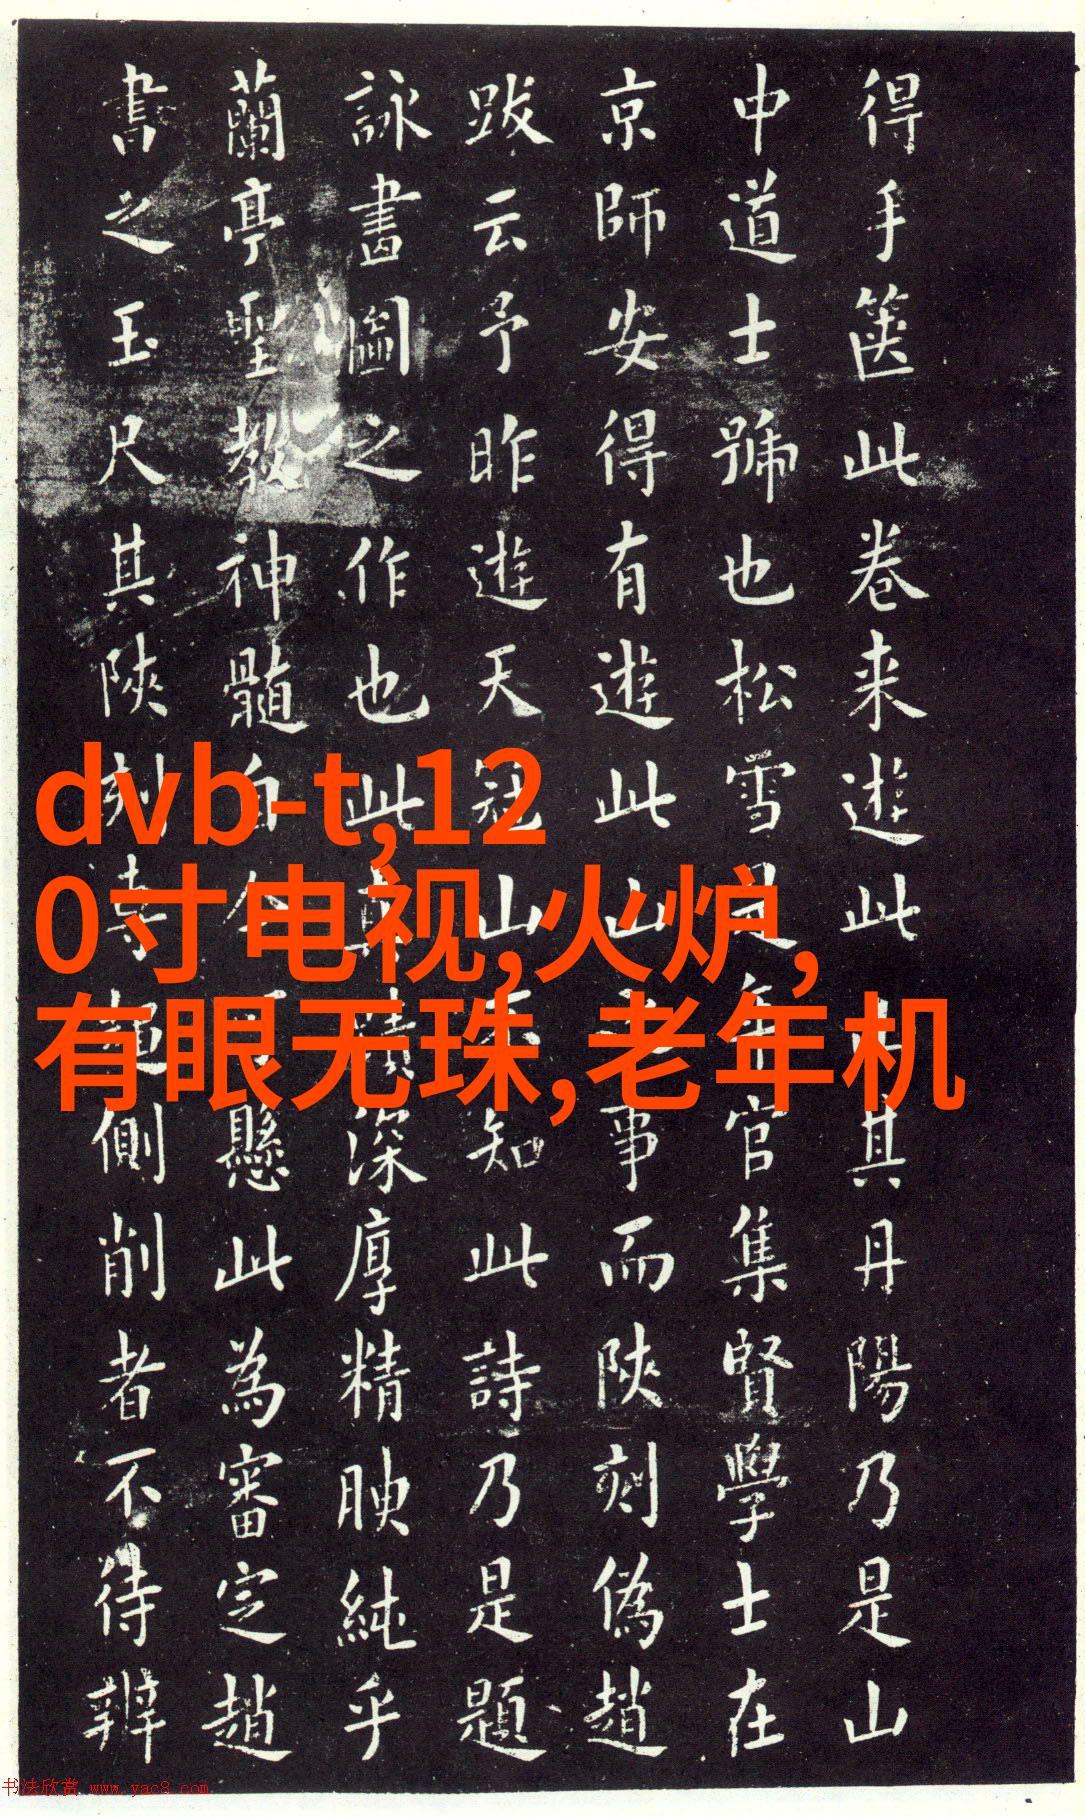 得手箧此卷来遊此
其丹陽乃是山
中道士號也松雪
年官集賢學士在
京師安得有遊此山
事而陝刻偽趙
跋云予昨遊天冠山
知此詩乃是題
詠書圖之作也此
深厚精腴純乎
蘭亭聖教神髓自
懸此為審定趙
書之玉尺其陝刻
側削者不待辨
dvb-t,12
0寸电视,火炉,
有眼无珠,老年机
书法欣赏 www.yac8.com